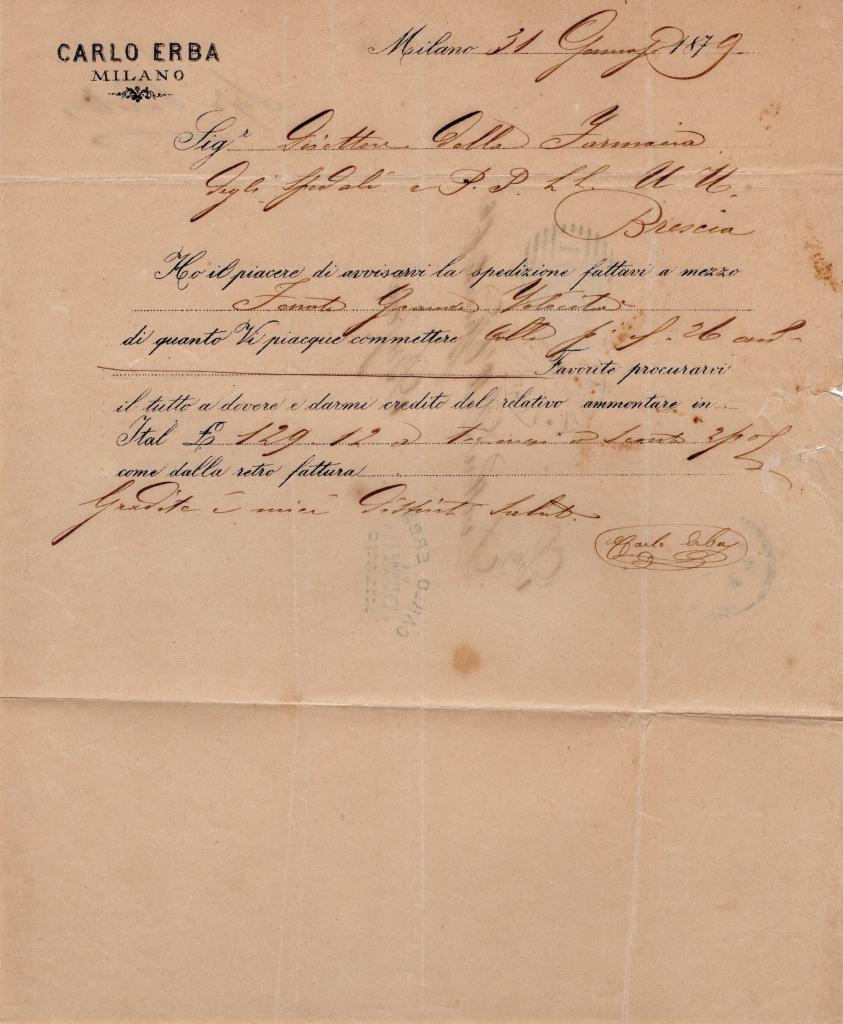 CARLO ERBA
MILANO
Milano 31 Gennajo 1879
Sig.r Direttore della Farmacia
degli Spedali e P. P. L. L. U U.
Brescia
Ho il piacere di avvisarvi la spedizione fattavi a mezzo
Ferrata Grande Velocità
di quanto Vi piacque commettere colla 26
Favorite procurarvi
il tutto a dovere e darmi credito del relativo ammontare in
Ital £ 129.12 a
come dalla retro fattura
Gradite i miei distinti saluti.
Carlo Erba
CARLO ERBA